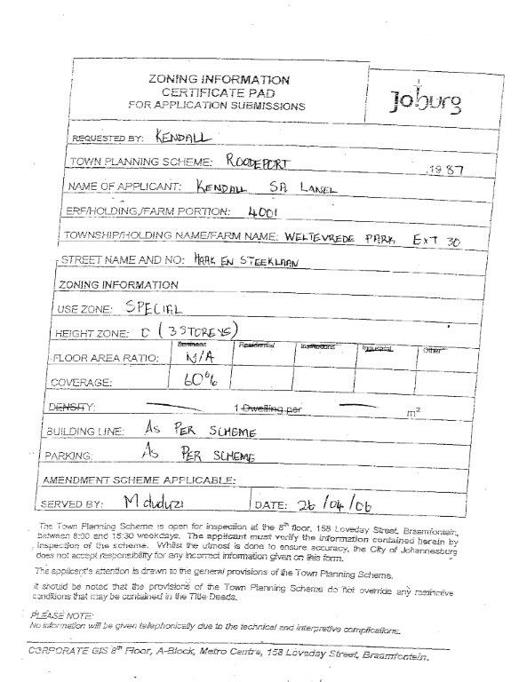 ZONING INFORMATION
CERTIFICATE PAD
FOR APPLICATION SUBMISSIONS
Joburg
REQUESTED BY: KENDALL
TOWN PLANNING SCHEME: ROODEPORT 1987
NAME OF APPLICANT: KENDALL SA LANEL
ERF/HOLDING/FARM PORTION: 4001
TOWNSHIP/HOLDING NAME/FARM NAME: WELTEVREDE PARK EXT 30
STREET NAME AND NO: HAAK EN STEEKLAAN
ZONING INFORMATION
USE ZONE: SPECIAL
HEIGHT ZONE: C (3 STOREYS)
Business Residential Institutional Industrial Other
FLOOR AREA RATIO: N/A
COVERAGE: 60%
DENSITY: 1 Dwelling per m²
BUILDING LINE: AS PER SCHEME
PARKING: AS PER SCHEME
AMENDMENT SCHEME APPLICABLE:
SERVED BY: Mduduzi DATE: 26/04/06
The Town Planning Scheme is open for inspection at the 8th floor, 158 Loveday Street, Braamfontein,
between 8:00 and 15:30 weekdays. The applicant must verify the information contained herein by
inspection of the scheme. Whilst the utmost is done to ensure accuracy, the City of Johannesburg
does not accept responsibility for any incorrect information given on this form.
The applicant's attention is drawn to the general provisions of the Town Planning Scheme.
It should be noted that the provisions of the Town Planning Scheme do not override any restrictive
conditions that may be contained in the Title Deeds.
PLEASE NOTE:
No information will be given telephonically due to the technical and interpretive complications.
CORPORATE GIS 8th Floor, A-Block, Metro Centre, 158 Loveday Street, Braamfontein.